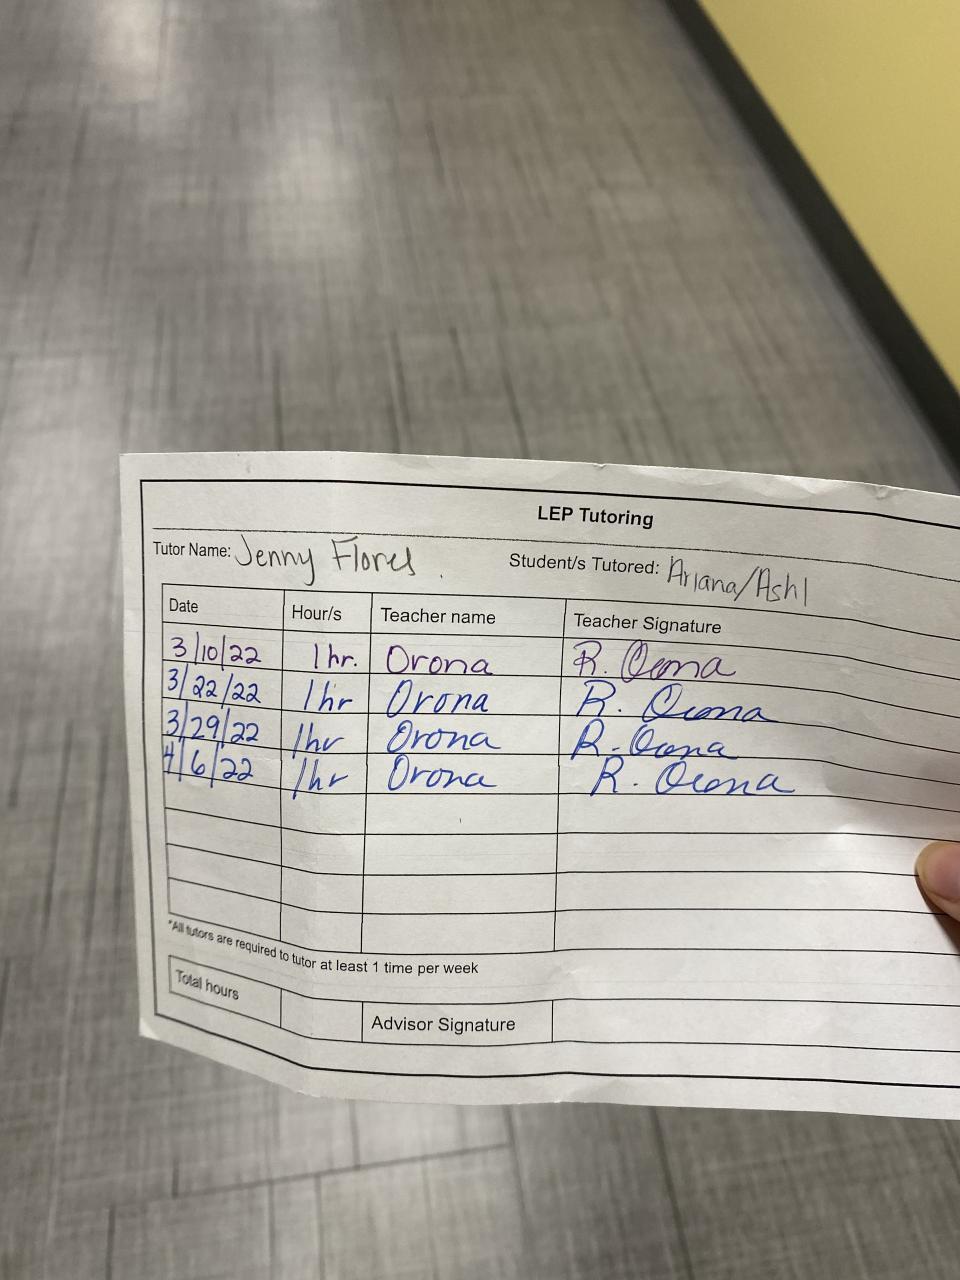 LEP Tutoring
Tutor Name: Jenny Flores Student/s Tutored: Ariana/Ashl
Date Hour/s Teacher name Teacher Signature
3/10/22 1 hr. Orona R. Orona
3/22/22 1 hr Orona R. Orona
3/29/22 1hr Orona R. Orona
4/6/22 1hr Orona R. Orona
*All tutors are required to tutor at least 1 time per week
Total hours Advisor Signature